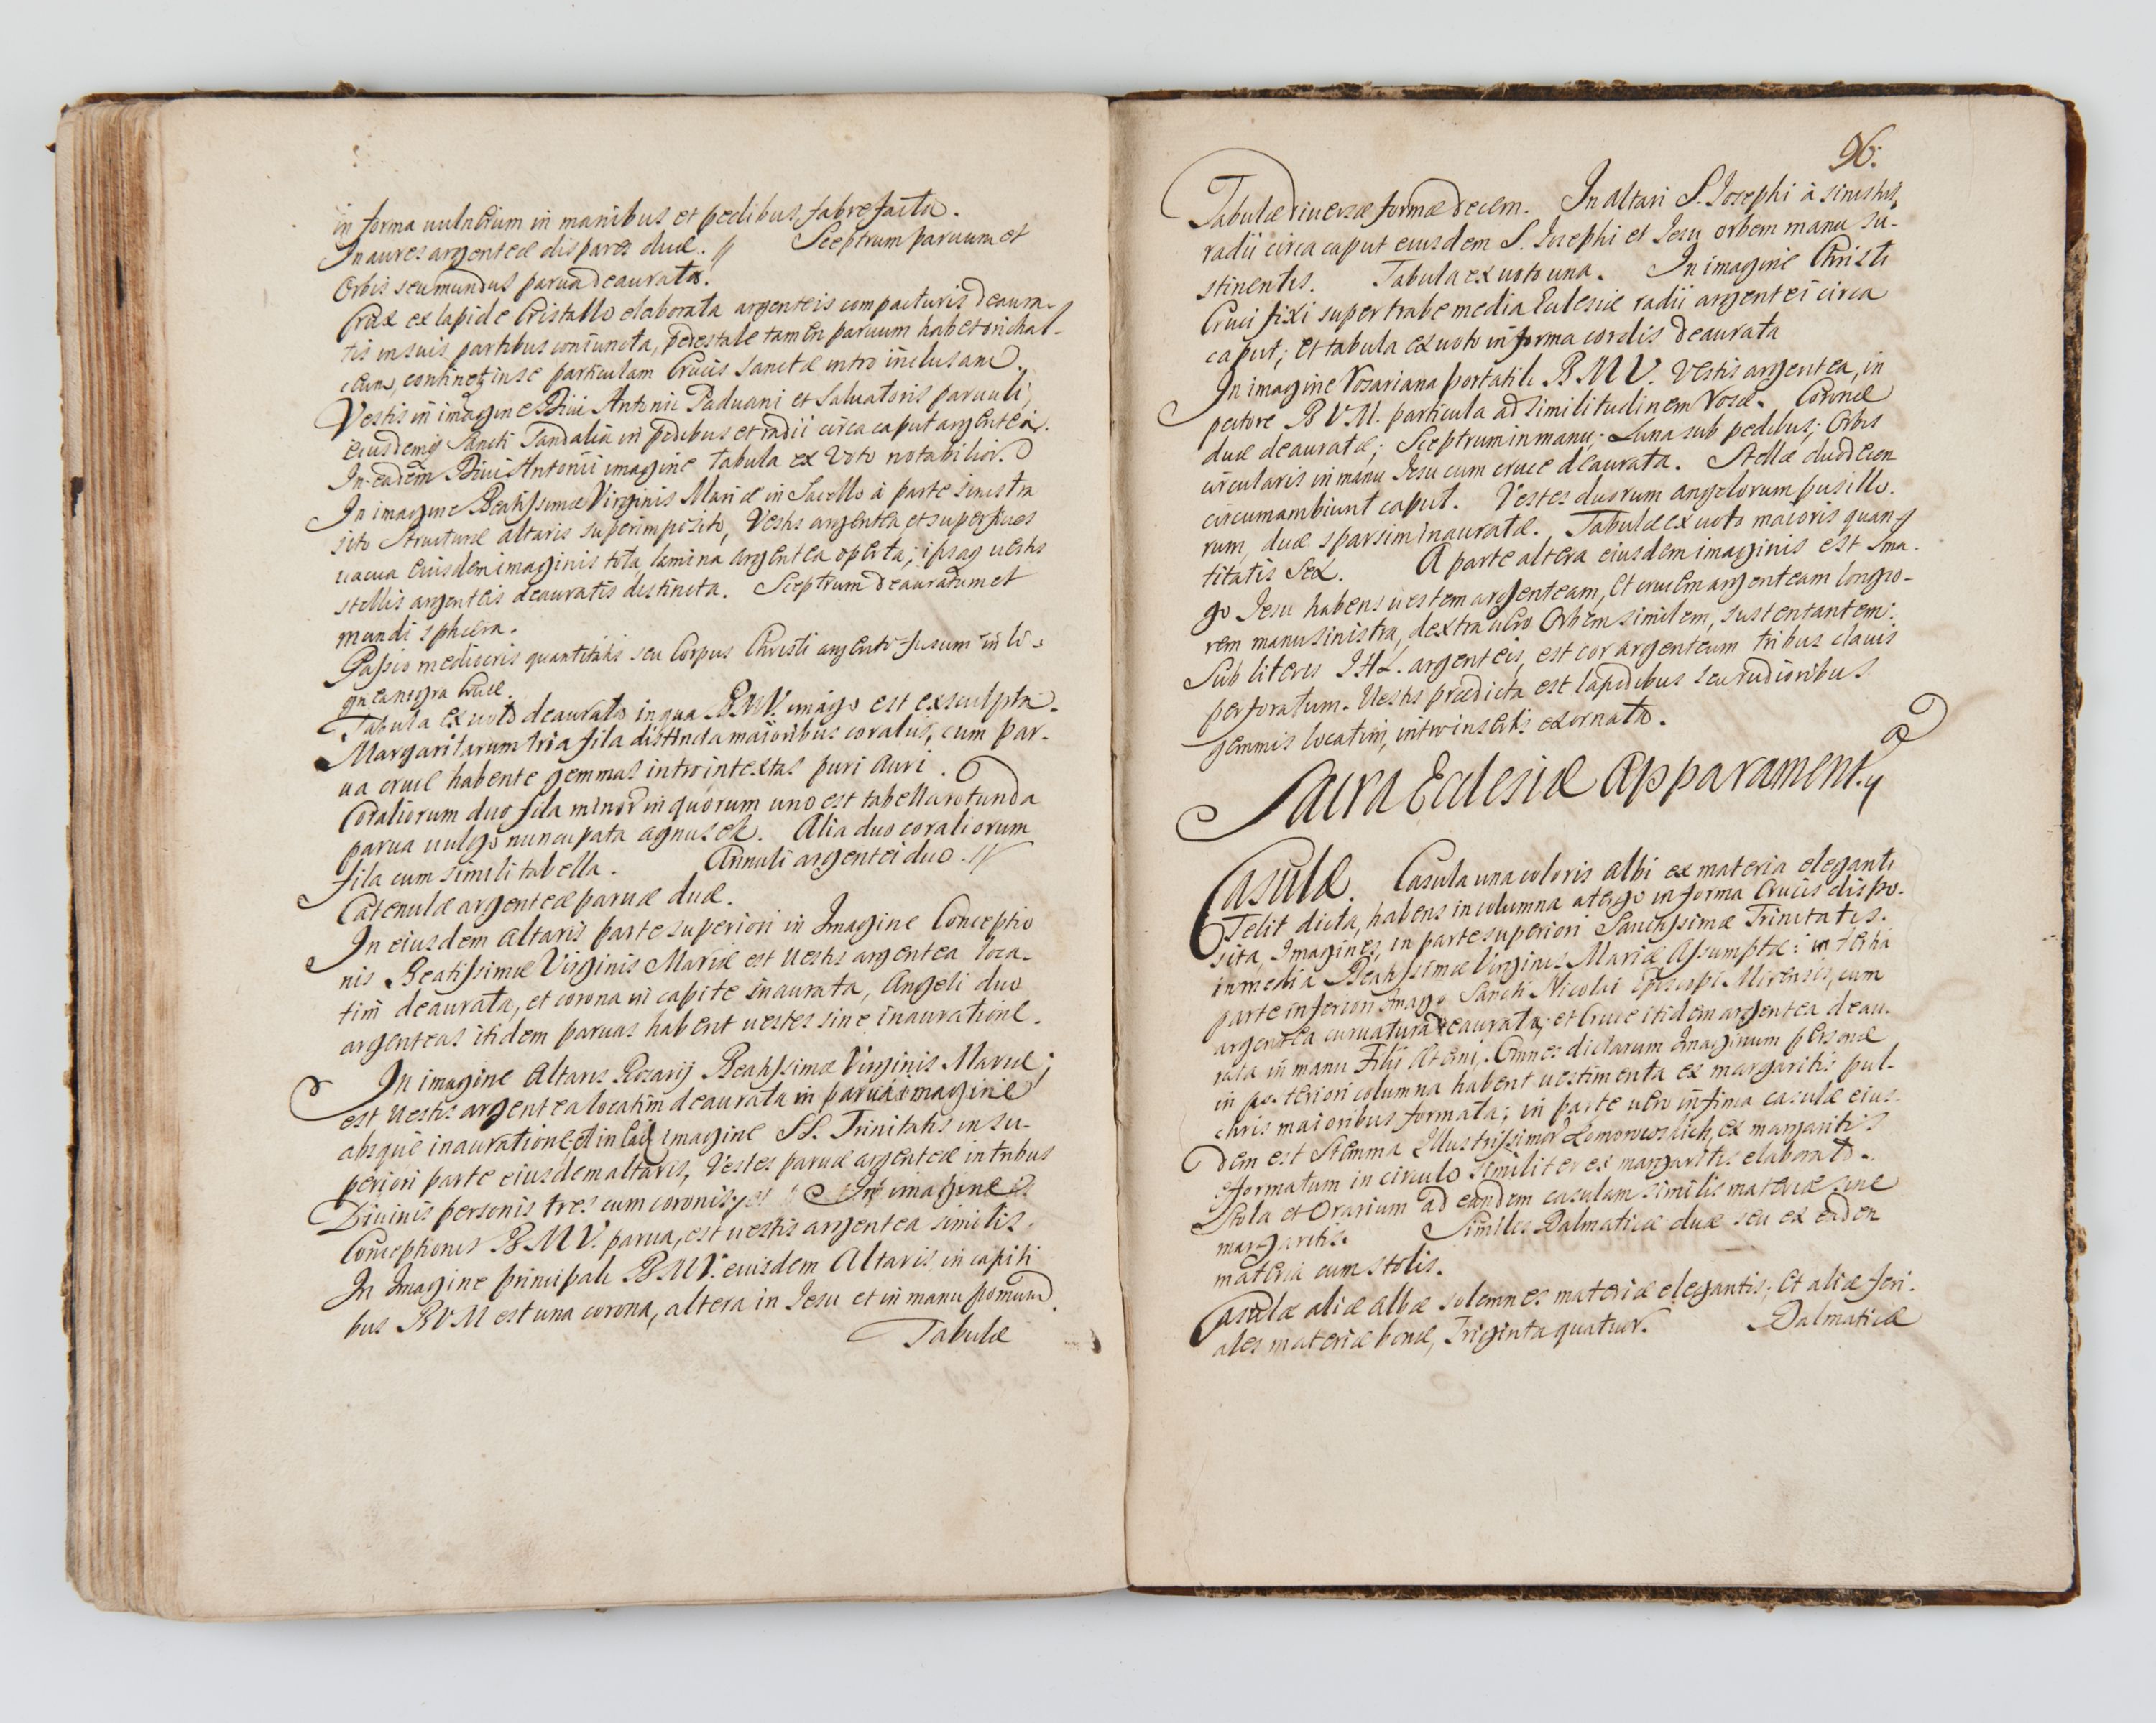 in forma uulnerum in manibus et pedibus, fabrefacta.
Inaures argenteæ dispares duæ. // Sceptrum paruum et
Orbis seu mundus parua deaurata.
Crux ex lapide Cristallo elaborata argenteis compacturis deaura-
tis in suis partibus coniuncta, pedestale tamen paruum habet orichal-
ceum, continet in se particulam Crucis Sanctæ intro inclusam.
Vestis in imagine Diui Antonii Paduani et Saluatoris paruuli,
eiusdemq Sancti Sandalia in pedibus et radii circa caput argentea.
In eadem Diui Antonii imagine tabula ex Voto notabilior.
In imagine Beatissimæ Virginis Mariæ in Sacello à parte sinistra
sito structuræ altaris superimposito, Vestis argentea et superficies
uacua eiusdem imaginis tota lamina argentea operta; ipsaq uestis
stellis argenteis deauratis distincta. Sceptrum deauratum et
mundi sphæra.
Passio mediocris quantitatis seu Corpus Christi argenti fusum in li-
gnea nigra Cruce.
Tabula ex uoto deaurato in qua B.M.V. imago est exsculpta.
Margaritarum tria fila distincta maioribus coraliis, cum par-
ua cruce habente gemmas intro intextas puri auri.
Coraliorum duo fila minor in quorum uno est tabella rotunda
parua uulgo nuncupata agnusek. Alia duo coraliorum
fila cum simili tabella. Annuli argentei duo. //
Catenulæ argenteæ paruæ duæ.
In eiusdem altaris parte superiori in Imagine Conceptio
nis Beatissimæ Virginis Mariæ est uestis argentea loca-
tim deaurata, et corona in capite inaurata, Angeli duo
argenteas itidem paruas habent uestes sine inauratione.
In imagine Altaris Rosarij Beatissimæ Virginis Mariæ;
est uestis argentea locatim deaurata in parua imagine
absque inauratione et in imagine SS. Trinitatis in su-
periori parte eiusdem altaris, Vestes paruæ argenteæ in tribus
Diuinis personis tres cum coronis. In imagine
Conceptionis B M V. parua, est uestis argentea similis.
In Imagine principali B M V. eiusdem Altaris in capiti
bus B V M est una corona, altera in Iesu et in manu pomum.
Tabulæ
96.
Tabulæ diuersæ formæ decem. In altari S. Iosephi à sinistris,
radii circa caput eiusdem S. Iosephi et Iesu orbem manu su-
stinentis. Tabula ex uoto una. In imagine Christi
Crucifixi super trabe media Eclesiæ radii argentei circa
caput; et tabula ex uoto in forma cordis deaurata
In imagine Rosariana portatili B M V. Vestis argentea, in
pectore B V M. particula ad similitudinem Rosæ. Coronæ
duæ deauratæ; Sceptrum in manu; Luna sub pedibus; Orbis
circularis in manu Iesu cum cruce deaurata. Stellæ duodecem
circumambiunt caput. Vestes duorum angelorum pusillo-
rum, duæ sparsim inauratæ. Tabulæ ex uoto maioris quan-
titatis Sex. A parte altera eiusdem imaginis est Ima-
go Iesu habens uestem argenteam, et crucem argenteam longio-
rem manu sinistra, dextra uero Orbem similem, sustentantem:
Sub literis IHS. argenteis, est cor argenteum tribus clauis
perforatum. Uestis prædicta est lapidibus seu rudioribus
gemmis locatim, intro insertis exornata.
Sacra Eclesiæ Apparament.
Casulæ. Casula una coloris albi ex materia eleganti
Telit dicta, habens in columna a tergo in forma Crucis dispo-
sita, Imagines, in parte superiori Sanctissimæ Trinitatis.
in media Beatissimæ Virginis Mariæ Assumptæ: in tertia
parte inferiori Imago Sancti Nicolai Episcopi Mirensis, cum
argentea curuatura deaurata; et Cruce itidem argentea deau-
rata in manu Filij Æterni. Omnes dictarum Imaginum personæ
in posteriori columna habent uestimenta ex margaritis pul-
chris maioribus formata; in parte uero infima casulæ eius-
dem est Stemma Illustrissimor Komorowskich, ex margaritis
formatum in circulo similiter ex margaritis elaborato.
Stola et Orarium ad eandem casulam similis materiæ sine
margaritis. Similes Dalmaticæ duæ seu ex eadem
materia cum stolis.
Casulæ aliæ albæ solemnes materiæ elegantis; et aliæ feri-
ales materiæ bonæ, Triginta quatuor. Dalmaticæ